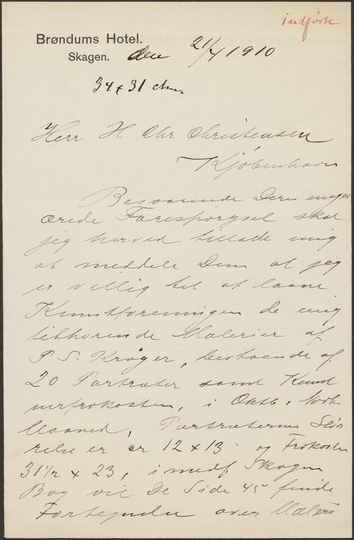 indført
Brøndums Hotel.
Skagen. den 21/4 1910
34 x 31 chm
Herr H. Chr. Christensen
Kjöbenhavn
Besvarende Deres meget
ærede Forespørgsel skal
jeg herved tillade mig
at meddele Dem at jeg
er villig til at laane
Kunstforeningen de mig
tilhørende Malerier af
P. S. Krøyer, bestaaende af
20 Portræter samt Kunst
nerfrokosten, i Oktb. Novb.
Maaned, Portræternes Stør
relse er er 12 x 13 og Frokosten
31 1/2 x 23, i medf. Skagen
Bog vil De Side 45 finde
Fortegnelse over